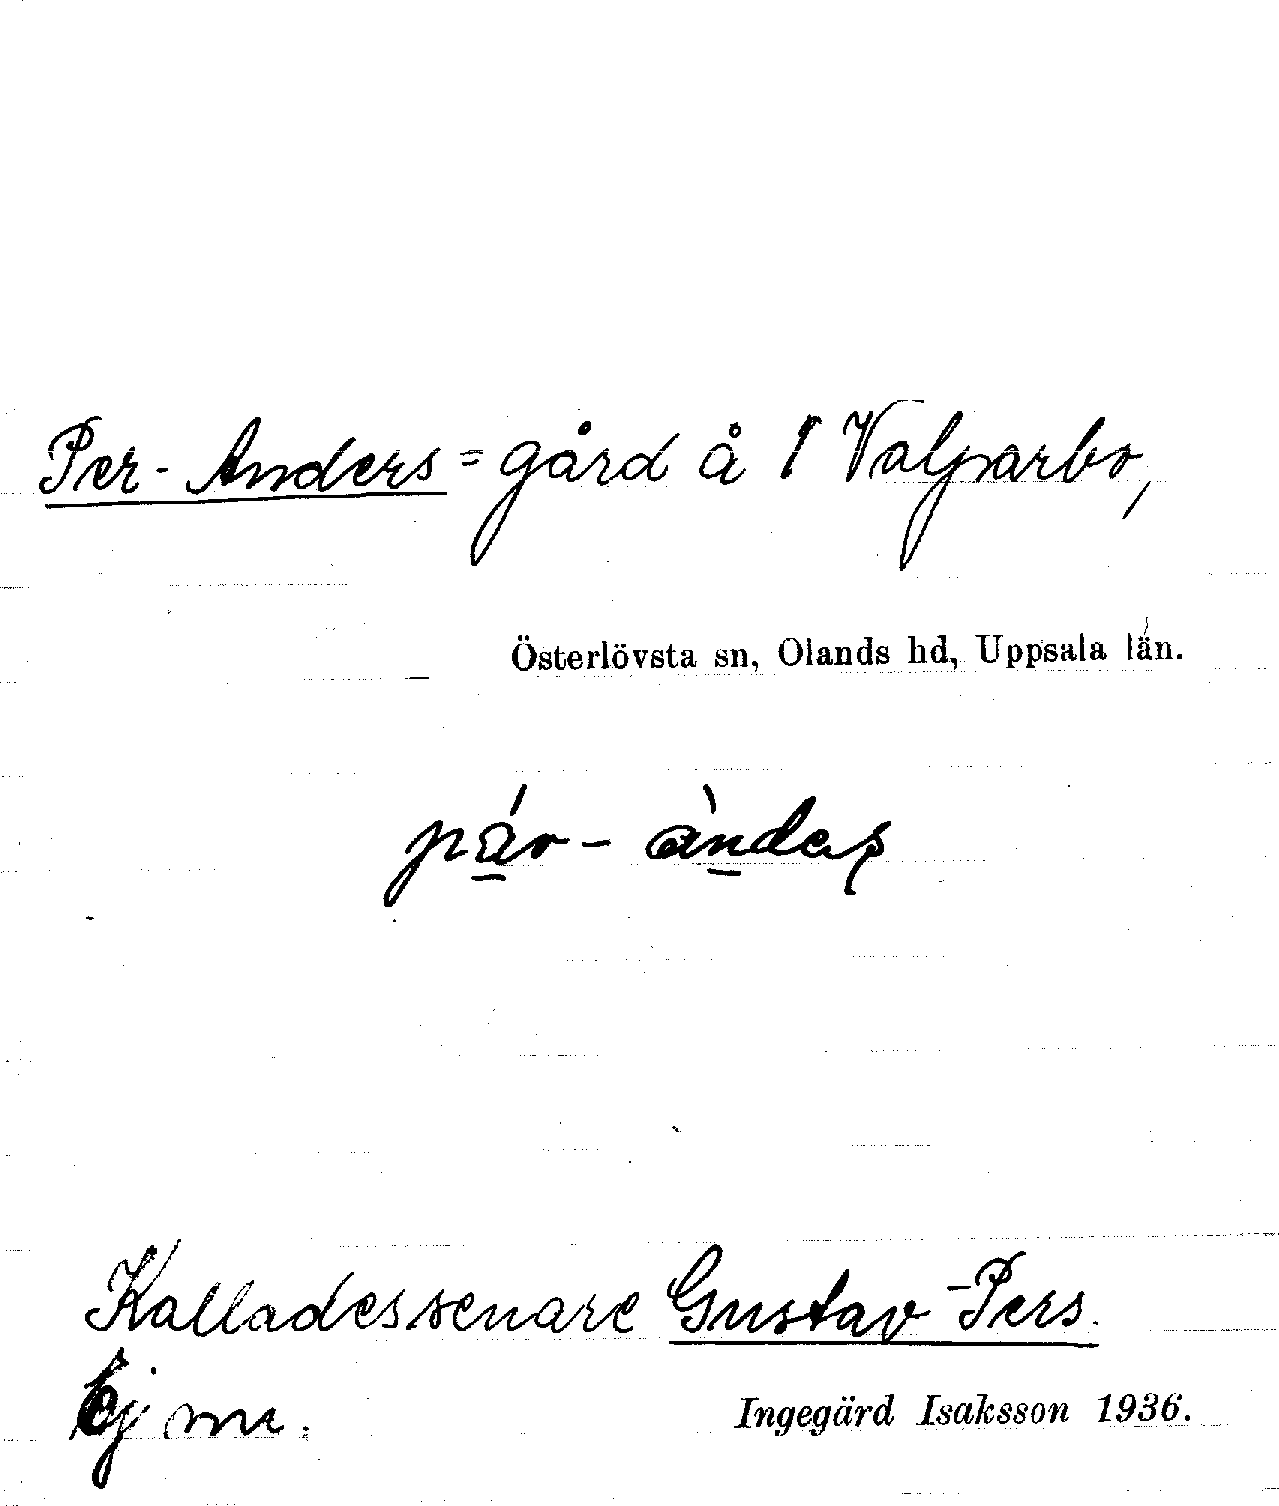 Per-Anders=gård å 1 Valparbo,
Österlövsta sn, Olands hd, Uppsala län.
Kallades senare Gustav-Pers.
Ej
Ingegärd Isaksson 1936.